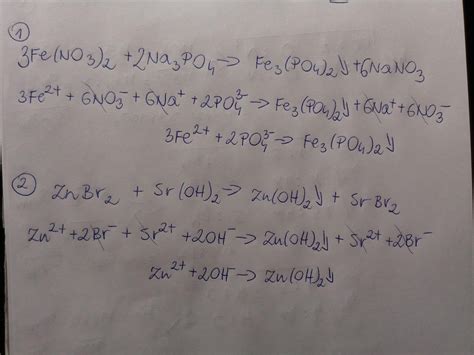 ①
3Fe(NO₃)₂ + 2Na₃PO₄ → Fe₃(PO₄)₂↓ + 6NaNO₃
3Fe²⁺ + 6NO₃⁻ + 6Na⁺ + 2PO₄³⁻ → Fe₃(PO₄)₂↓ + 6Na⁺ + 6NO₃⁻
3Fe²⁺ + 2PO₄³⁻ → Fe₃(PO₄)₂↓
② ZnBr₂ + Sr(OH)₂ → Zn(OH)₂↓ + SrBr₂
Zn²⁺ + 2Br⁻ + Sr²⁺ + 2OH⁻ → Zn(OH)₂↓ + Sr²⁺ + 2Br⁻
Zn²⁺ + 2OH⁻ → Zn(OH)₂↓